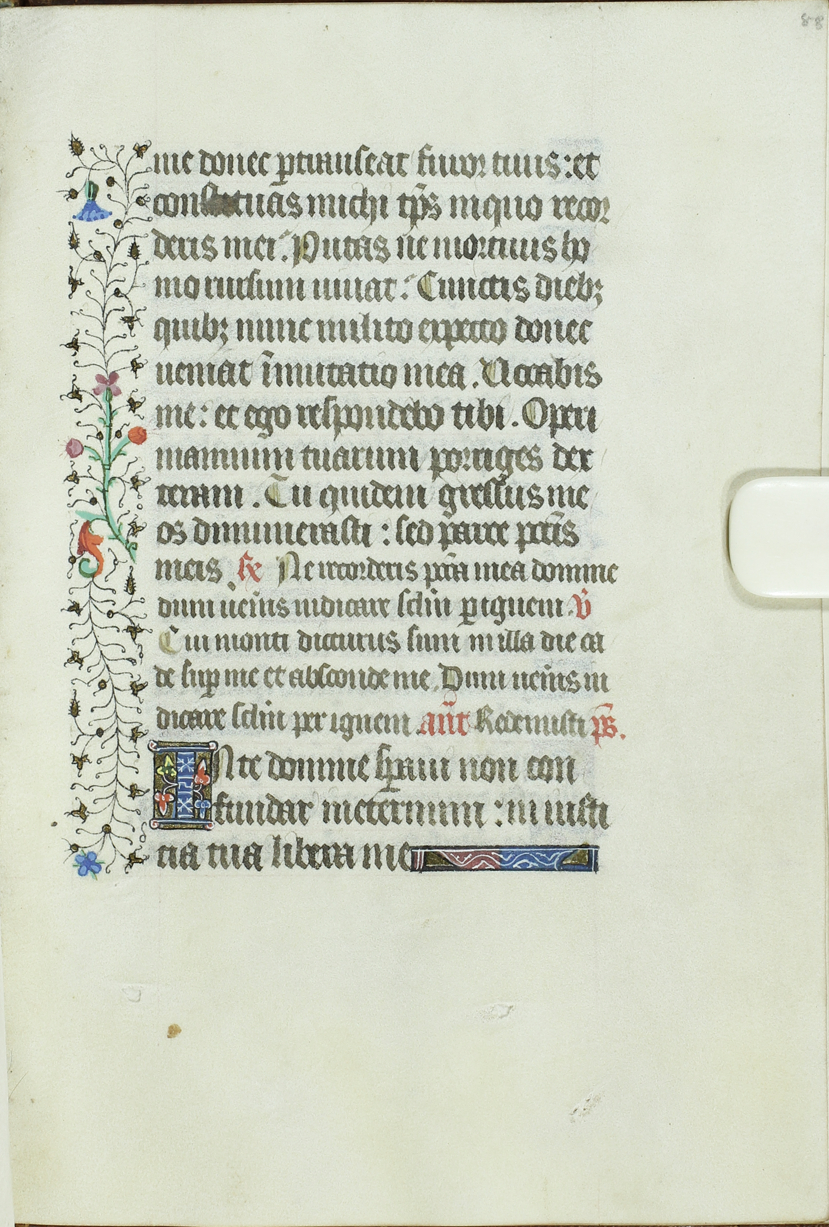 88
me donec ꝑtranseat furor tuus: et
constituas michi tp̄s in quo recor
deris mei. Putas ne mortuus ho
mo rursum uiuat: Cunctis diebꝫ
quibꝫ nunc milito expecto donec
ueniat īmutatio mea. Uocabis
me: et ego respondebo tibi. Operi
manuum tuarum porriges dex
teram. Tu quidem gressus me
os dinumerasti: sed parce pctīs
meis. Ne recorderis pctā mea domine
dum ueīus iudicare sclm̄ ꝑ ignem. v̄
Cui monti dicturus sum in illa die ca
de suꝑ me et absconde me. Dum ueīus iu
dicare sclm̄ per ignem. an̄t Redemisti ps̄.
IN te domine speraui non con
fundar in eternum: in iusti
tia tua libera me